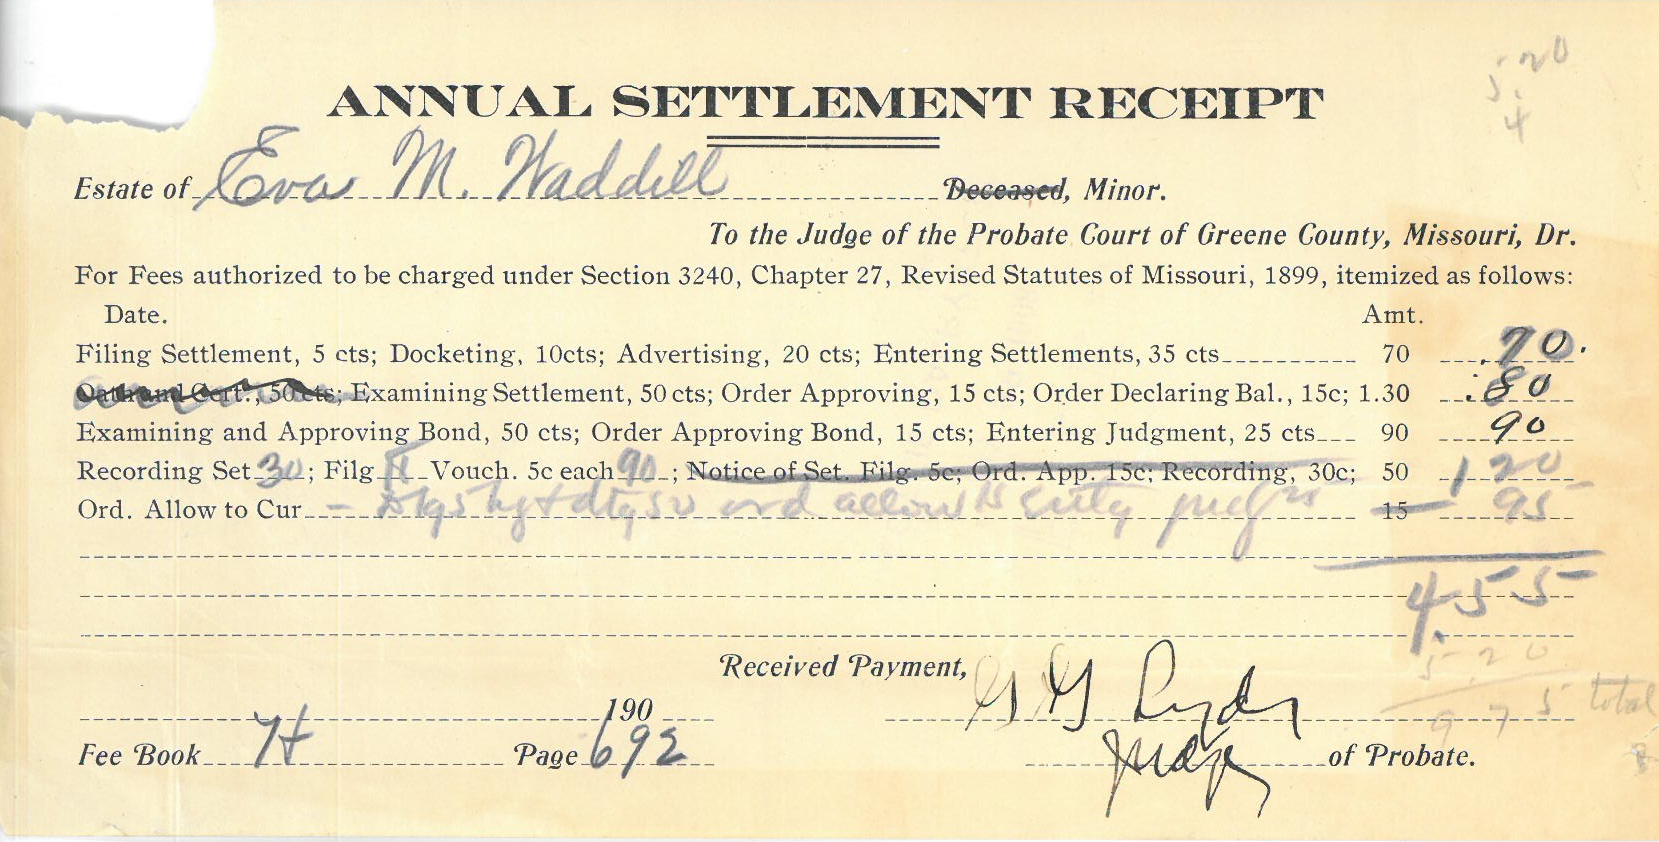 5.20
4
ANNUAL SETTLEMENT RECEIPT
Estate of Eva M. Waddill Deceased, Minor.
To the Judge of the Probate Court of Greene County, Missouri, Dr.
For Fees authorized to be charged under Section 3240, Chapter 27, Revised Statutes of Missouri, 1899, itemized as follows:
Date. Amt.
Filing Settlement, 5 cts; Docketing, 10cts; Advertising, 20 cts; Entering Settlements, 35 cts 70 .70.
Oath and Cert., 50 cts; Examining Settlement, 50 cts; Order Approving, 15 cts; Order Declaring Bal., 15c; 1.30 .80
Examining and Approving Bond, 50 cts; Order Approving Bond, 15 cts; Entering Judgment, 25 cts 90 90
Recording Set 30; Filg Vouch. 5c each 90; Notice of Set. Filg. 5c; Ord. App. 15c; Recording, 30c; 50 1 20
Ord. Allow to Cur ord allow 15 95
4.55
5.20
Received Payment, G G Lydy
190 9 75 total
Fee Book H Page 692 Judge of Probate.